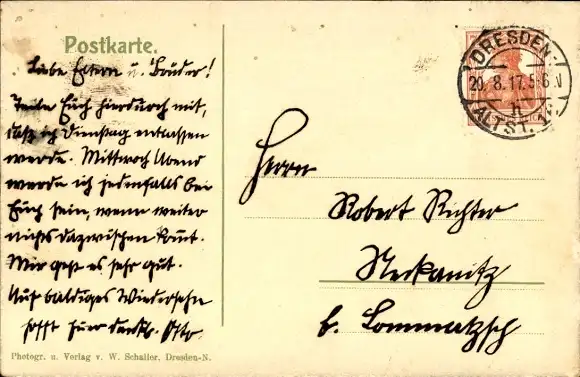 Postkarte.
Liebe Eltern u. Brüder!
Teile Euch hierdurch mit,
daß ich Dienstag entlassen
werde. Mittwoch Abend
werde ich jedenfalls bei
Euch sein, wenn weiter
nichts dazwischen komt.
Mir geht es sehr gut.
Auf baldiges Wiedersehn
hofft Euer dankb. Otto.
Photogr. u. Verlag v. W. Schaller, Dresden-N.
DRESDEN-
20.8.17.5-6N
ALTST.
Herrn
Robert Richter
Neckanitz
b. Lommatzsch